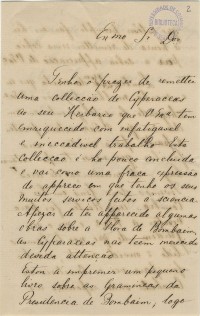 2
BIBLIOTHECA
Exmo Sr Dor
Tenho o prazer de remetter
uma collecção de Cyperacias
ao seu Herbario que V. Exa tem
enriquecido com infatigavel
e inexcedivel trabalho. Esta
collecção é ha pouco concluida
e vai como uma fraca expressão
do apreço em que tenho os seus
muitos serviços feitos a sciencia.
Apezar de ter apparecido algumas
obras sobre a Flora de Bombaim,
as Cyperacias não teem merecido
devida attenção.
Estou a imprimir um pequeno
livro sobre as Gramineas da
Presidencia de Bombaim, logo